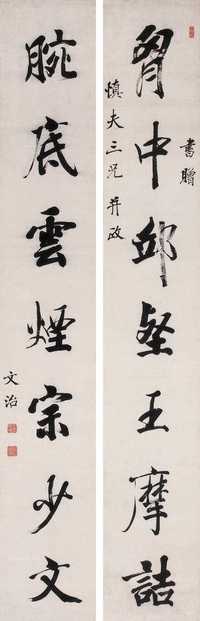 胷中邱壑王摩詰
書贈
慎夫三兄并政
腕底雲煙宗少文
文治